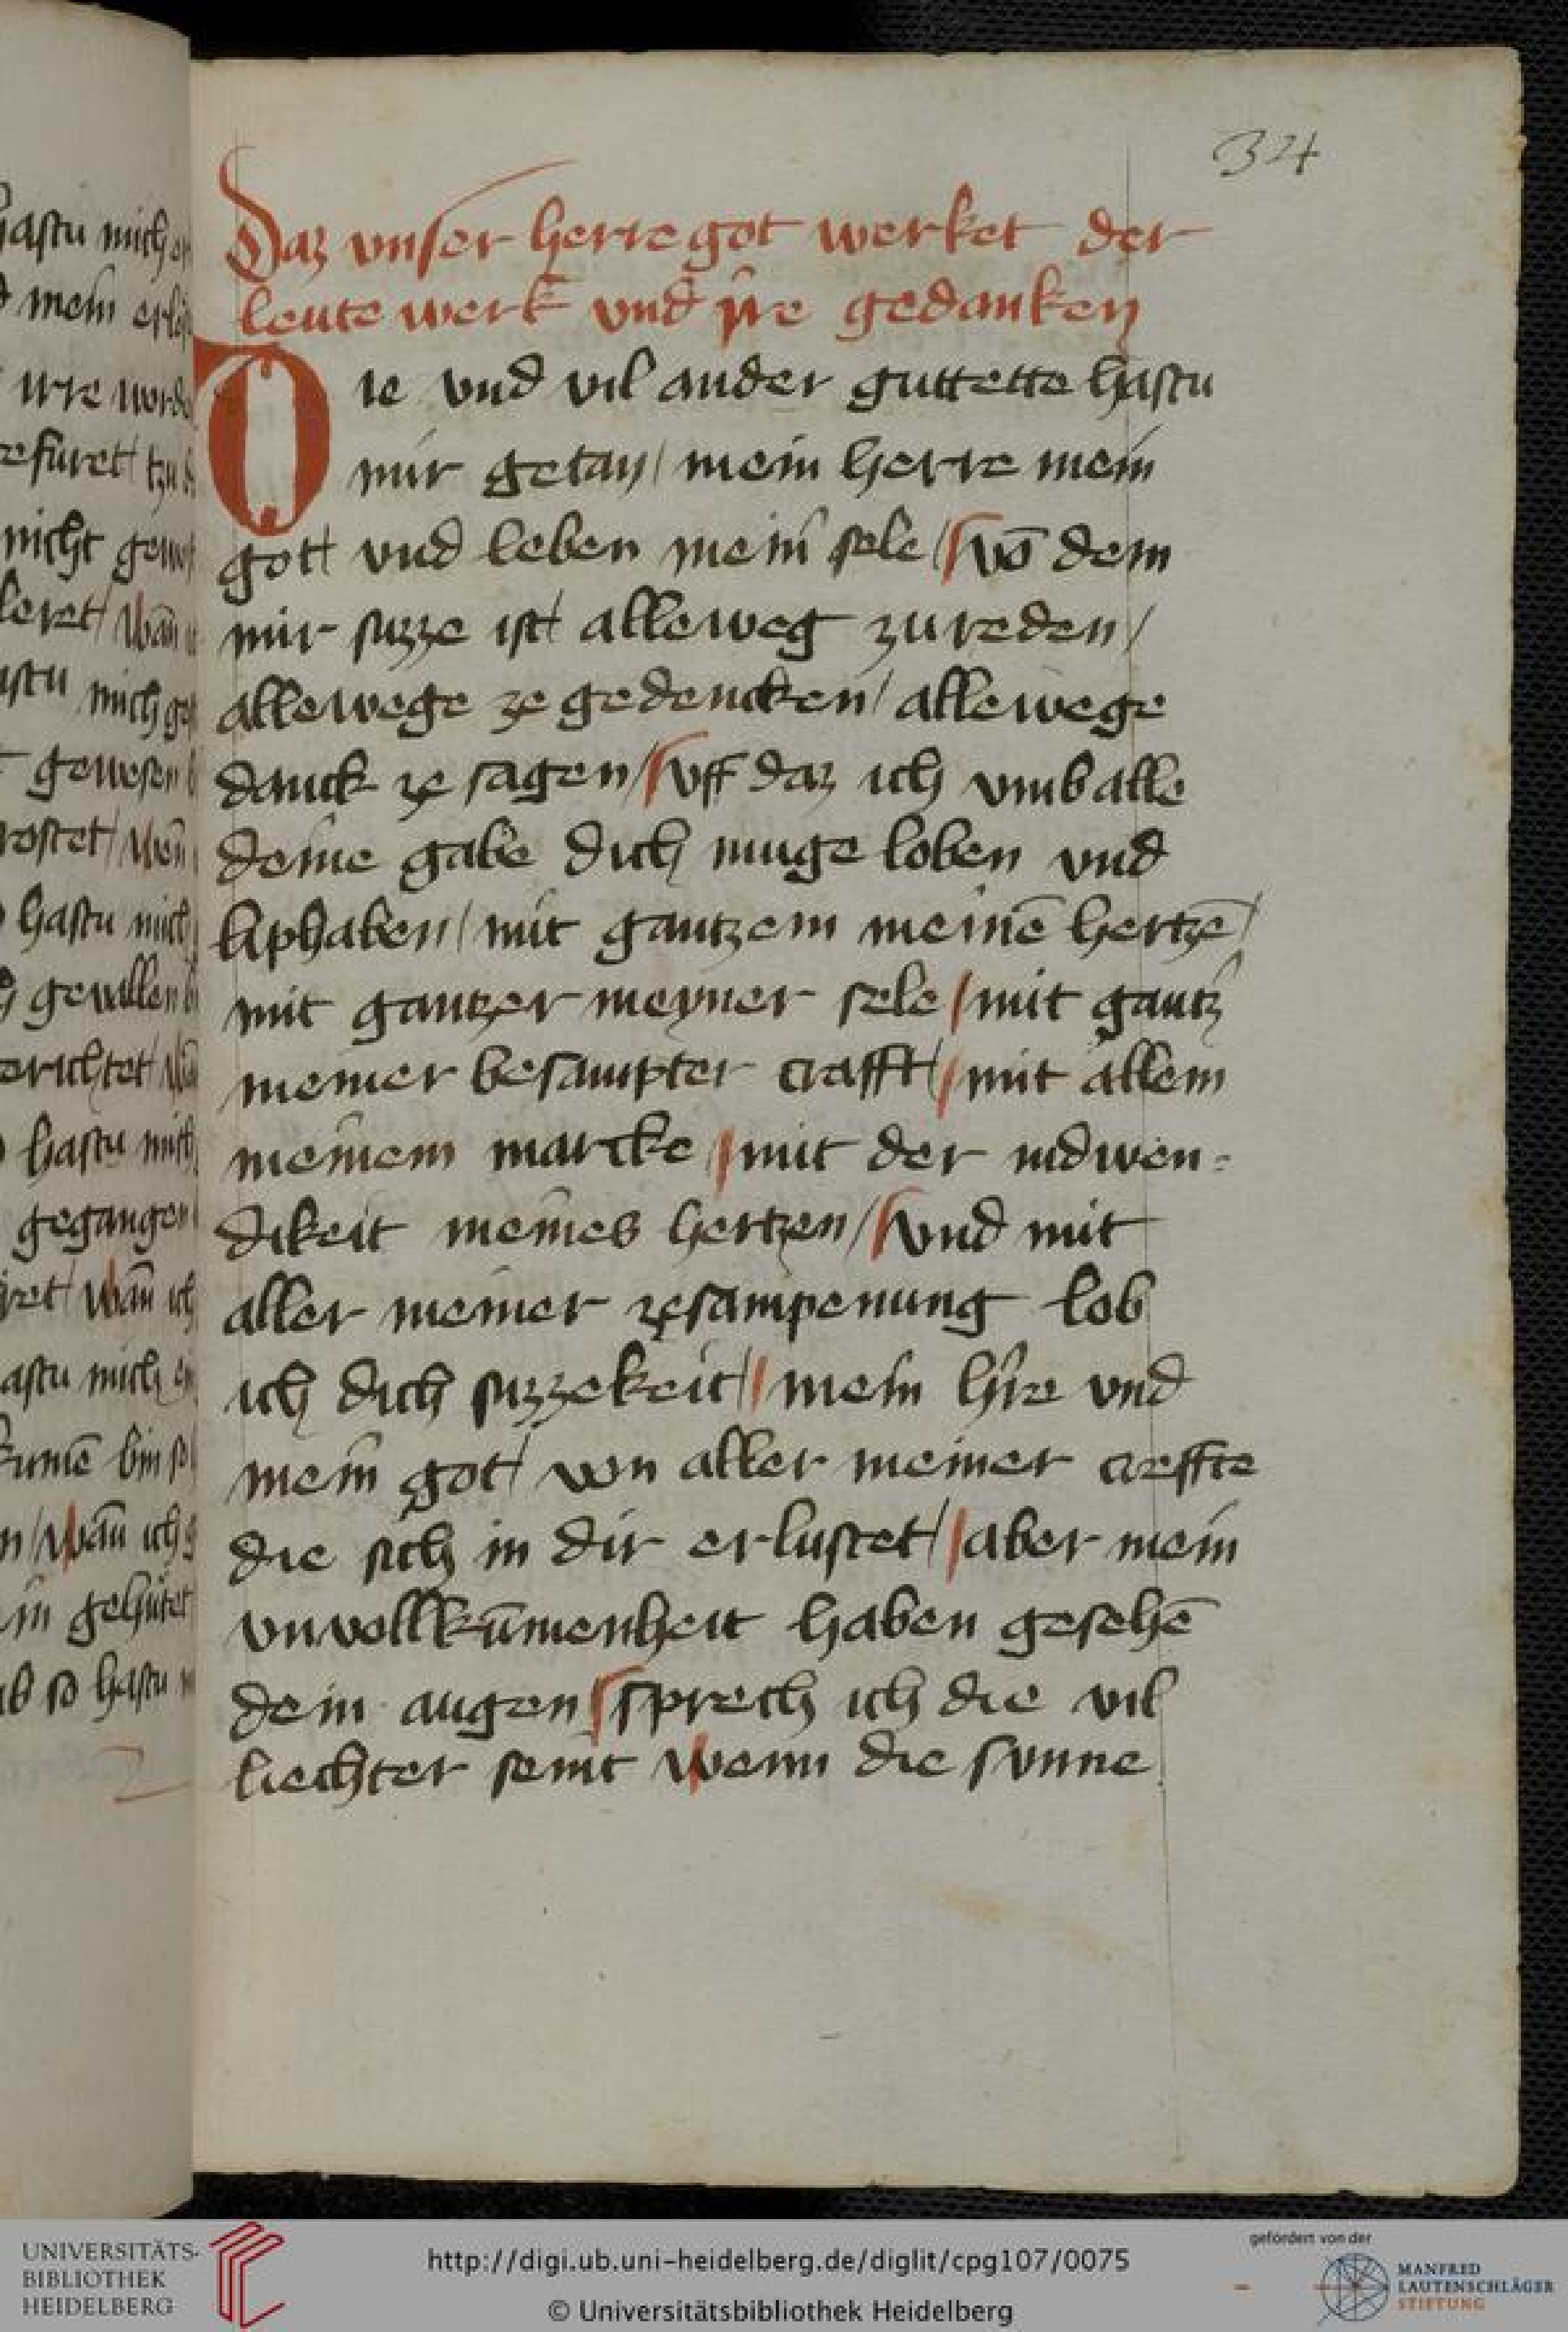 34
Daz vnser herre got werket der
leute werk vnd ire gedanken
Die vnd vil ander guttette hastu
mir getan / mein herre mein
got / vnd leben mein sele / vō dem
mir suzze ist / alleweg zu reden /
allewege ze gedencken / allewege
danck ze sagen / vff daz ich vmb alle
deine gabe dich muge loben vnd
liphaben / mit gantzem meinē hertzē /
mit gantzer meyner sele / mit gantz
meiner besampter crafft / mit allem
meinem marcke / mit der indwen-
dikeit meines hertzen / vnd mit
aller meiner zesampenung lob
ich dich suzzekeit / mein hïre vnd
mein got / von aller meiner creffte
die sich in dir erlustet / aber mein
vnvollkūmenheit haben gesehē
dein augen / sprech ich die vil
liechter seint wenn die sunne
UNIVERSITÄTS-
BIBLIOTHEK
HEIDELBERG
http://digi.ub.uni-heidelberg.de/diglit/cpg107/0075
© Universitätsbibliothek Heidelberg
gefördert von der
MANFRED
LAUTENSCHLÄGER
STIFTUNG